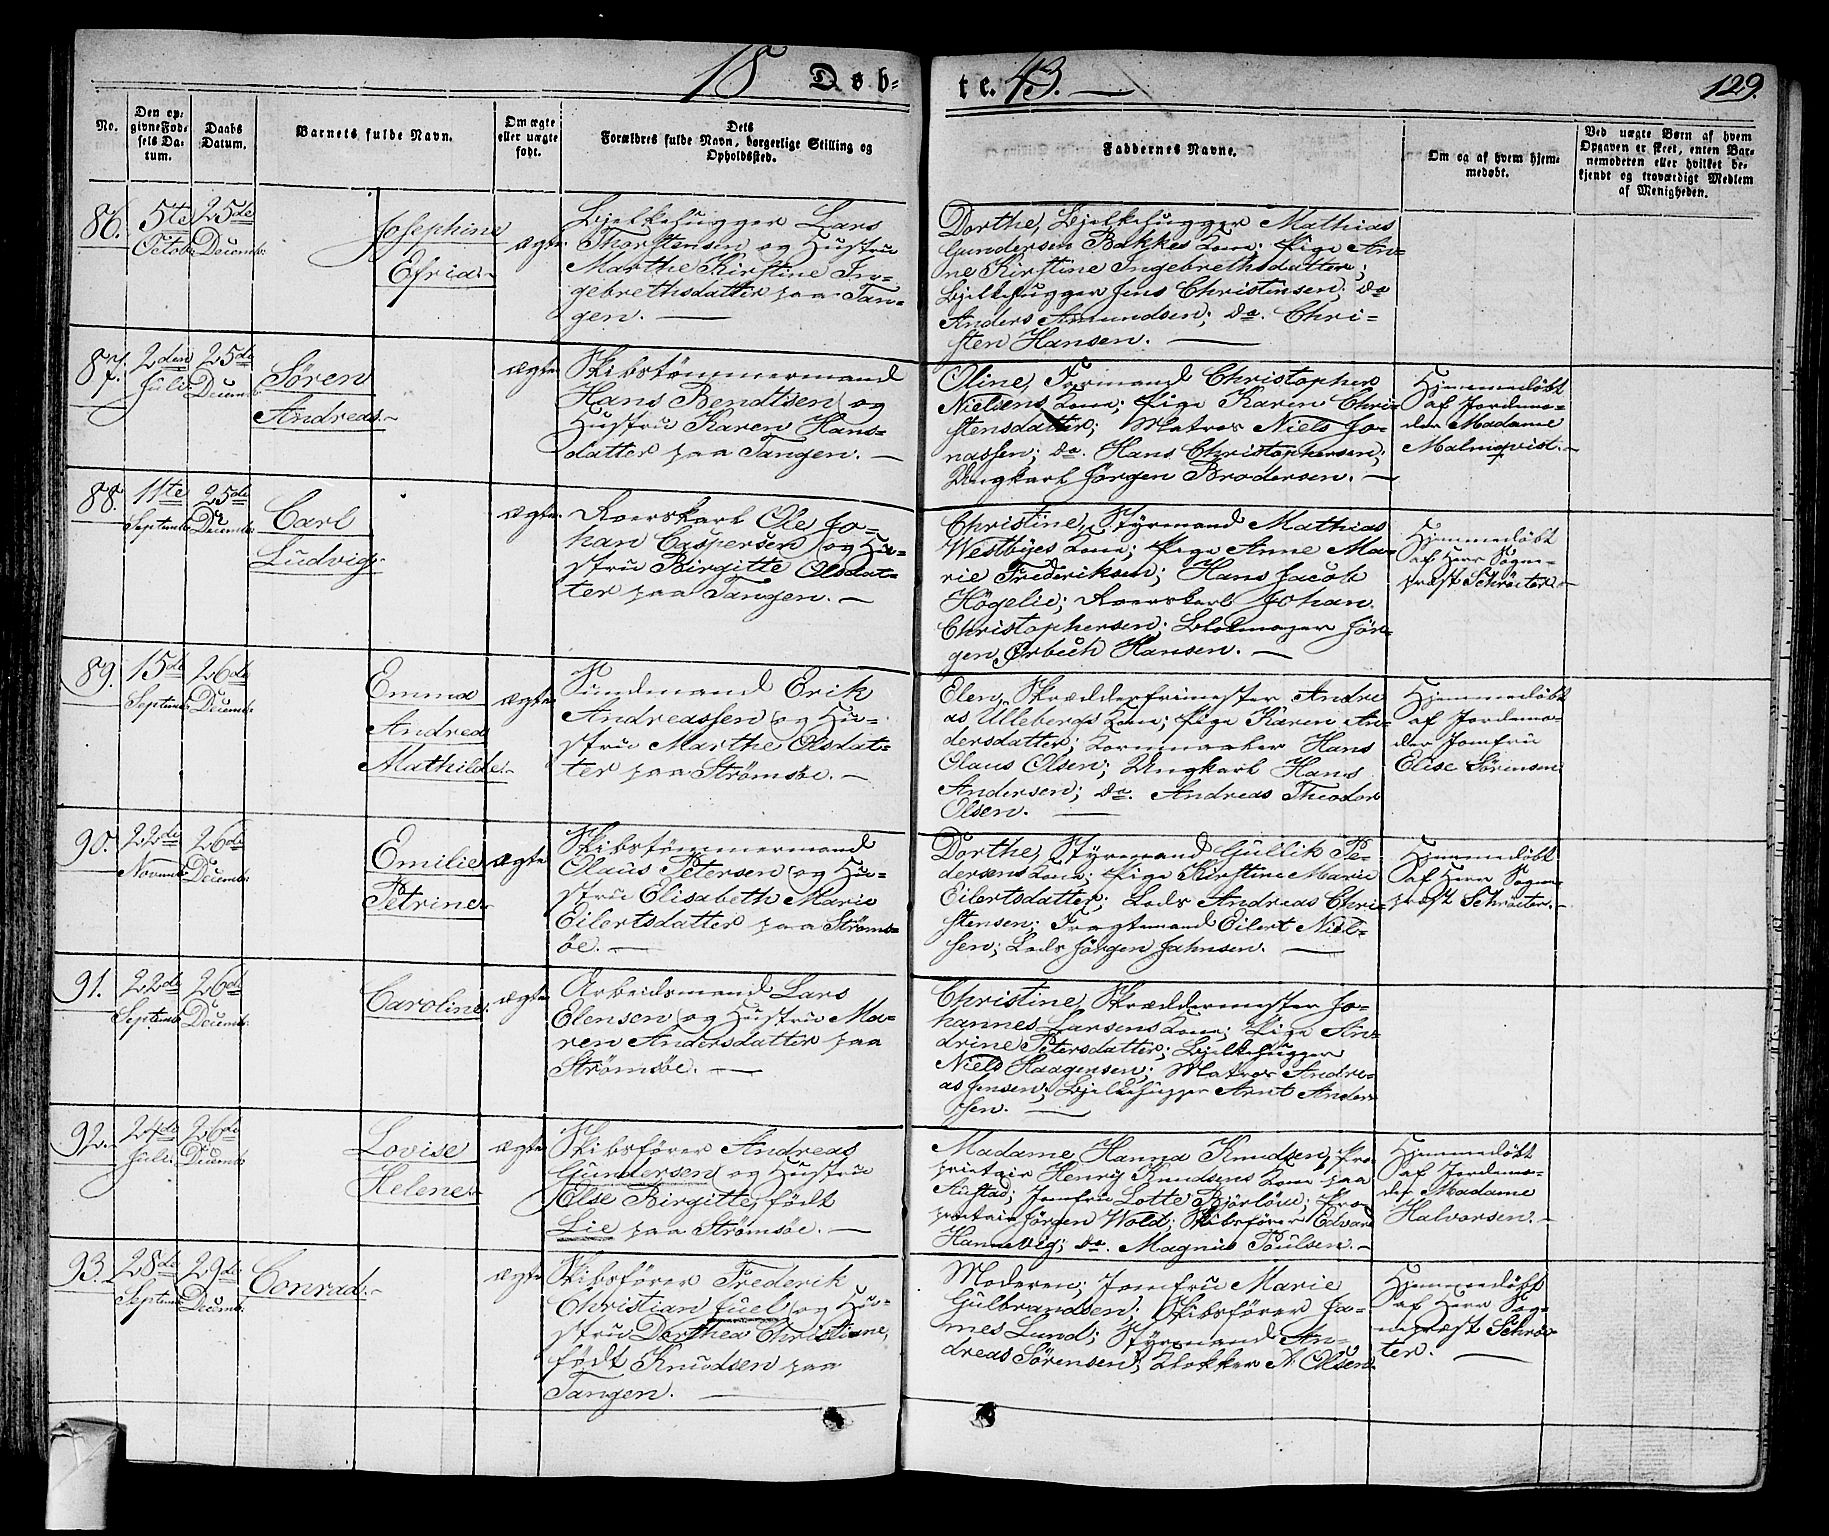 18 Døb-
te. 43. —
129.
No.
Den op-
givne Fød-
sels Da-
tum.
Daabs
Datum.
Barnets fulde Navn.
Om ægte
eller uægte
født.
Dets
Forældres fulde Navn, borgerlige Stilling og
Opholdssted.
Faddernes Navne.
Om og af hvem hjem-
medøbt.
Ved uægte Børn af hvem
Opgaven er skeet, enten Bar-
nemoderen eller hvilket be-
kjendt og troværdigt Medlem
af Menigheden.
86.
5te
Octob.
25de
Decemb.
Josephine
Efria.-
ægte
Bjelkehugger Lars
Thorstensen og Hustru
Marthe Kirstine In-
gebrethsdatter paa Tan-
gen. —
Dorthe, Bjelkehugger Mathias
Gundersen Bakkes Kone; Pige An-
ne Kirstine Ingebrethsdatter;
Bjelkehugger Jens Christensen; do
Anders Amundsen; do. Chri-
sten Hansen. —
87.
2den
Juli.
25de
Decemb.
Søren
Andreas.-
ægte
Skibstømmermand
Hans Bendtsen og
Hustru Karen Hans-
datter paa Tangen. —
Oline, Formand Christopher
Nielsens Kone; Pige Karen Chri-
stensdatter; Matros Niels Jo-
nassen; do. Hans Christophersen;
Ungkarl Jørgen Brodersen. —
Hjemmedøbt
af Jordemo-
der Madame
Malmqvist. -
88.
11te
Septemb.
25de
Decemb.
Carl
Ludvig.-
ægte
Roerskarl Ole Jo-
han Caspersen og Hu-
stru Birgitte Olsdat-
ter paa Tangen. —
Christine, Styrmand Mathias
Westbyes Kone; Pige Anne Ma-
rie Frederiksen; Hans Jacob
Høgelie; Roerskarl Johan
Christophersen; Blokmager Jør-
gen Ørbech Hansen. —
Hjemmedøbt
af Herr Sogne-
præst Schrøeter. -
89.
15de
Septemb.
26de
Decemb.
Emma
Andrea
Mathilde.-
ægte
Sundmand Erik
Andreassen og Hu-
stru Marthe Olsdat-
ter paa Strømsøe. —
Elen, Skrædderfrimester Andre
as Ullebergs Kone; Pige Karen An-
dersdatter; Kornmaaler Hans
Olaus Olsen; Ungkarl Hans
Andersen; do. Andreas Theodor
Olsen. —
Hjemmedøbt
af Jordemo-
der Jomfru
Elise Sørensen.
90.
22de
Novemb.
26de
Decemb.
Emilie
Petrine.-
ægte
Skibstømmermand
Olaus Petersen og Hu-
stru Elisabeth Marie
Eilertsdatter paa Strøms-
øe. —
Dorthe, Styrmand Gullik Pe-
dersens Kone; Pige Kirstine Marie
Eilertsdatter; Lods Andreas Chri-
stensen; Fragtemand Eilert Niel-
sen; Lods Jørgen Jahnsen. —
Hjemmedøbt
af Herr Sogne-
præst Schrøeter. -
91.
22de
Septemb.
26de
Decemb.
Caroline.
ægte
Arbeidsmand Lars
Elensen og Hustru Ma-
ren Andersdatter paa
Strømsøe. —
Christine, Skræddermester Jo-
hannes Larsens Kone; Pige An-
drine Petersdatter; Bjelkehugger
Niels Haagensen; Matros Andre-
as Jensen; Bjelkehugger Arnt Ander-
sen. —
92.
24de
Juli.
26de
Decemb.
Lovise
Helene.-
ægte
Skibsfører Andreas
Gundersen og Hustru
Else Birgitte, født
Lie paa Strømsøe. —
Madame Hanna Knudsen, Pro-
prietair Henry Knudsens Kone paa
Austad; Jomfru Lotte Bjørløw; Pro-
prietair Jørgen Wold; Skibsfører Edvard
Hannevig; do. Magnus Poulsen. —
Hjemmedøbt
af Jordemo-
der Madame
Halvorsen. -
93.
28de
Septemb.
29de
Decemb.
Conrad.-
ægte
Skibsfører Frederik
Christian Juel og Hu-
stru Dorthea Christiane,
født Knudsen paa
Tangen. —
Moderen; Jomfru Marie
Gulbrandsen; Skibsfører Ja-
mes Lund; Styrmand An-
dreas Sørensen; Klokker A. Olsen.
Hjemmedøbt
af Herr Sog-
nepræst Schrøe-
ter. —